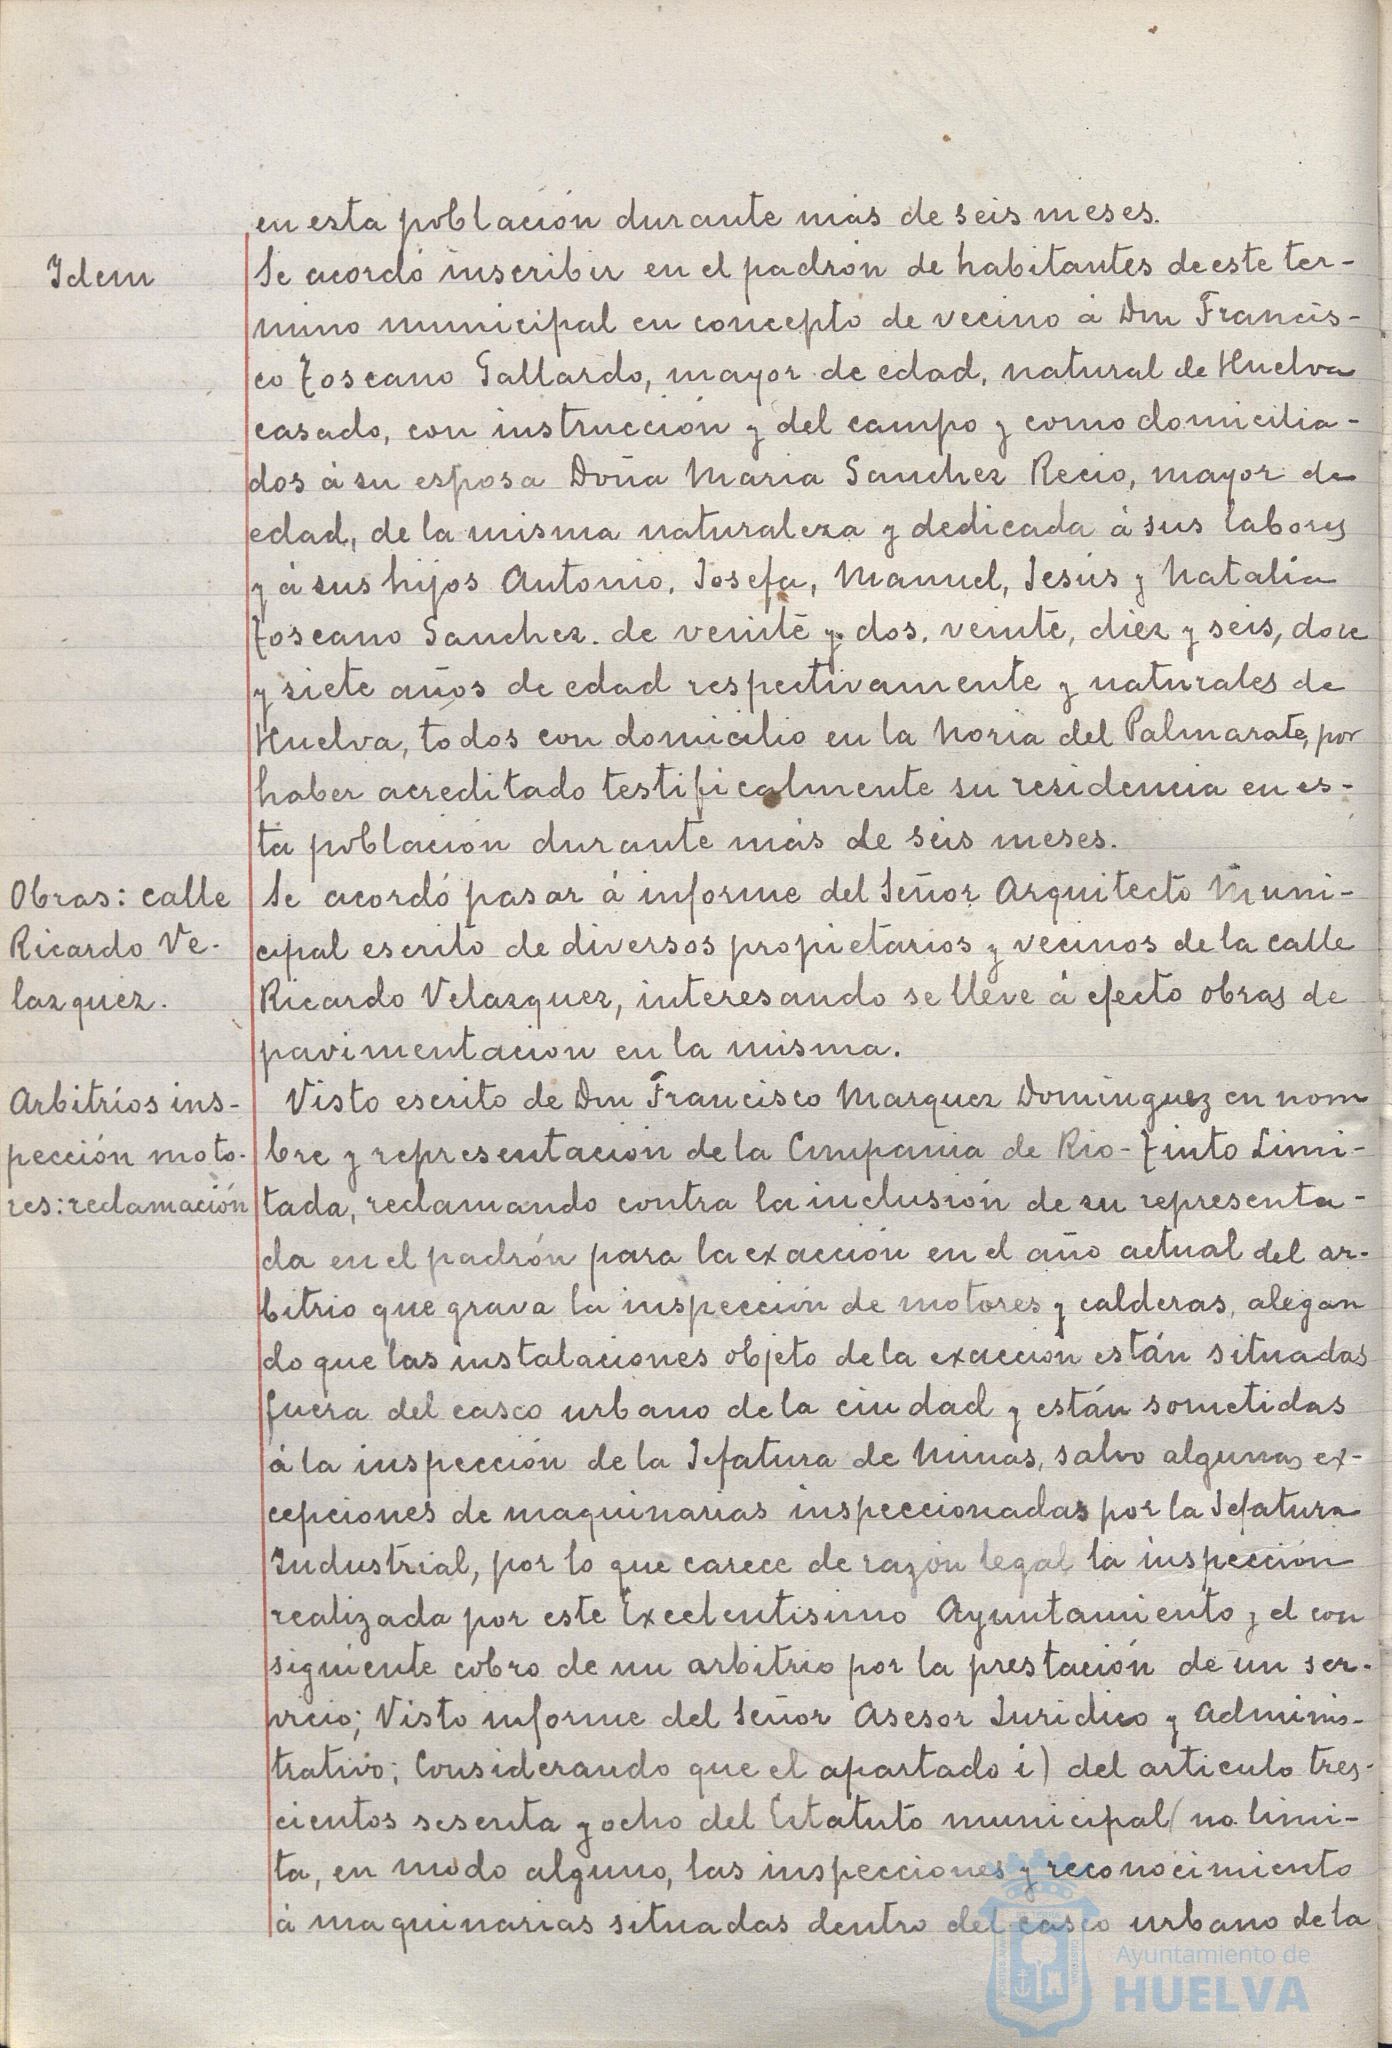 en esta población durante más de seis meses.
Idem
Se acordó inscribir en el padrón de habitantes de este ter-
mino municipal en concepto de vecino á Don Francis-
co Toscano Gallardo, mayor de edad, natural de Huelva
casado, con instrucción y del campo y como domicilia-
dos á su esposa Doña Maria Sanchez Recio, mayor de
edad, de la misma naturaleza y dedicada á sus labores
y á sus hijos Antonio, Josefa, Manuel, Jesús y Natalia
Toscano Sanchez. de veinte y dos, veinte, diez y seis, doce
y siete años de edad respectivamente y naturales de
Huelva, todos con domicilio en la Noria del Palmarate, por
haber acreditado testificalmente su residencia en es-
ta población durante más de séis meses.
Obras: calle
Ricardo Ve-
lazquez.
Se acordó pasar á informe del Señor Arquitecto Muni-
cipal escrito de diversos propietarios y vecinos de la calle
Ricardo Velazquez, interesando se lleve á efecto obras de
pavimentación en la misma.
Arbitrios ins-
pección moto-
res: reclamación
Visto escrito de Don Francisco Marquez Dominguez en nom
bre y representación de la Compañia de Rio-Tinto Limi-
tada, reclamando contra la inclusión de su representa-
da en el padrón para la exacción en el año actual del ar-
bitrio que grava la inspección de motores y calderas, alegan
do que las instalaciones objeto de la exaccion están situadas
fuera del casco urbano de la ciudad y están sometidas
á la inspección de la Jefatura de Minas, salvo algunas ex-
cepciones de maquinarias inspeccionadas por la Jefatura
Industrial, por lo que carece de razón legal la inspección
realizada por este Excelentisimo Ayuntamiento y el con
siguiente cobro de un arbitrio por la prestación de un ser-
vicio; Visto informe del Señor Asesor Juridico y Adminis-
trativo; Considerando que el apartado i) del articulo tres-
cientos sesenta y ocho del Estatuto municipal no limi-
ta, en modo alguno, las inspecciones y reconocimiento
á maquinarias situadas dentro del casco urbano de la
Ayuntamiento de
HUELVA